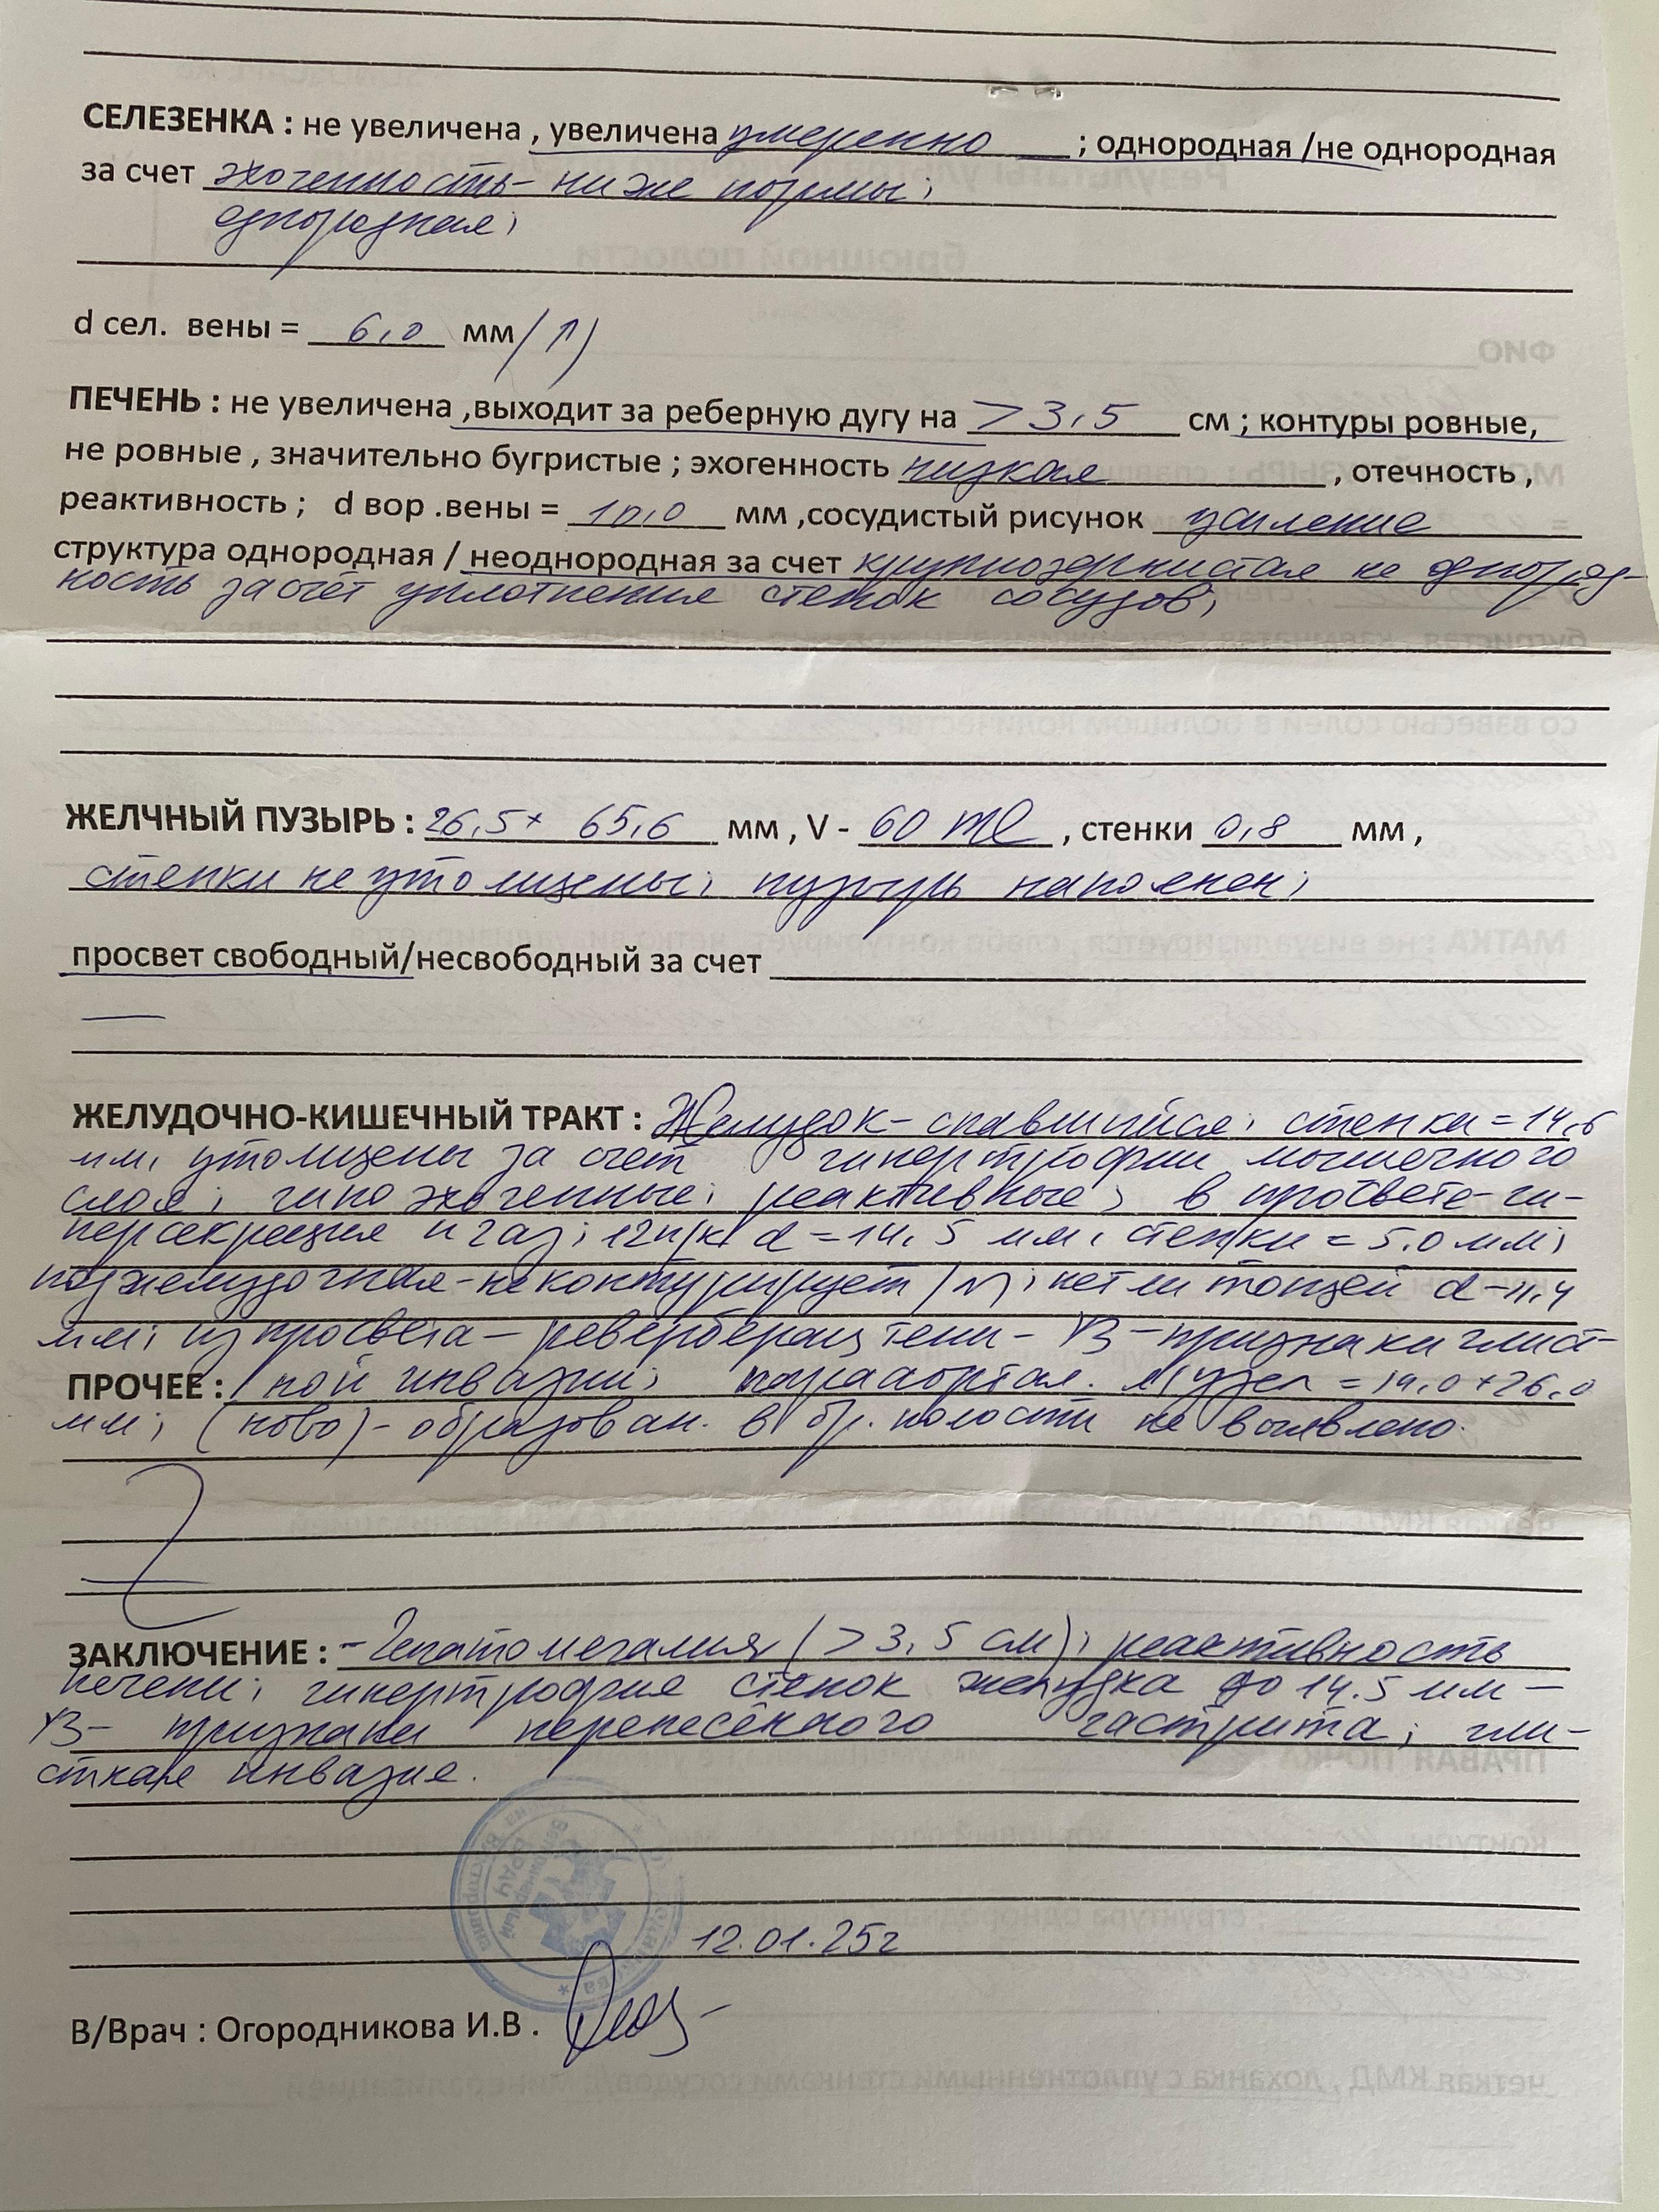 СЕЛЕЗЕНКА : не увеличена , увеличена умеренно ; однородная /не однородная
за счет эхогенность- ниже нормы;
однородная;
d сел. вены = 6,0 мм (↑)
ПЕЧЕНЬ : не увеличена ,выходит за реберную дугу на >3,5 см ; контуры ровные,
не ровные , значительно бугристые ; эхогенность низкая , отечность ,
реактивность ; d вор .вены = 10,0 мм ,сосудистый рисунок усиление
структура однородная / неоднородная за счет крупнозернистая не однород-
ность за счёт уплотнения стенок сосудов;
ЖЕЛЧНЫЙ ПУЗЫРЬ : 26,5+ 65,6 мм , V - 60 ml , стенки 0,8 мм ,
стенки не утолщены; пузырь наполнен;
просвет свободный/несвободный за счет
—
ЖЕЛУДОЧНО-КИШЕЧНЫЙ ТРАКТ : Желудок- спавшийся; стенка = 14,6
мм, утолщены за счет гипертрофии мышечного
слоя; гипоэхогенные; реактивные; в просвете- ги-
персекреция и газ; 12п/к d = 14,5 мм, стенки = 5.0 мм;
поджелудочная - не контурирует (N); петли тощей d - 11,4
мм; из просвета - реверберац тени - УЗ - признаки глист-
ПРОЧЕЕ : ной инвазии; парааортал. л/узел = 19,0+26,0
мм; (ново)- образован. в бр. полости не выявлено.
ЗАКЛЮЧЕНИЕ : - Гепатомегалия (>3,5 см); реактивность
печени; гипертрофия стенок желудка до 14.5 мм -
УЗ- признаки перенесённого гастрита; гли-
стная инвазия.
Ветеринарный
ВРАЧ
12.01.25г
В/Врач : Огородникова И.В .